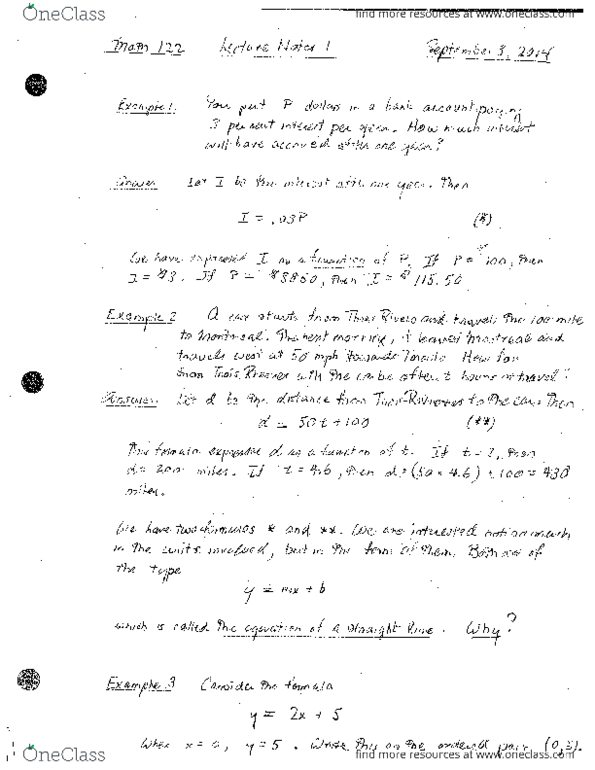 OneClass
find more resources at www.oneclass.com
Math 122 Lecture Notes 1 September 3, 2014
Example 1. You put P dollars in a bank account paying
3 per cent interest per year. How much interest
will have accrued after one year?
Answer Let I be the interest after one year. Then
I = .03P (*)
We have expressed I as a function of P. If P = $100, then
I = $3. If P = $3850, then I = $115.50
Example 2 A car starts from Trois Rivers and travels the 100 miles
to Montreal. The next morning, it leaves Montreal and
travels west at 50 mph towards Toronto. How far
from Trois Rivieres will the car be after t hours of travel?
Answer: Let d be the distance from Trois-Rivieres to the car. Then
d = 50t + 100 (**)
This formula expresses d as a function of t. If t = 2, then
d = 200 miles. If t = 4.6, then d = (50 × 4.6) + 100 = 430
miles.
We have two formulas * and **. We are interested not so much
in the units involved, but in the form of them. Both are of
the type
y = mx + b
which is called the equation of a straight line. Why?
Example 3 Consider the formula
y = 2x + 5
When x = 0, y = 5. Write this as the ordered pair (0,5).
OneClass
find more resources at www.oneclass.com